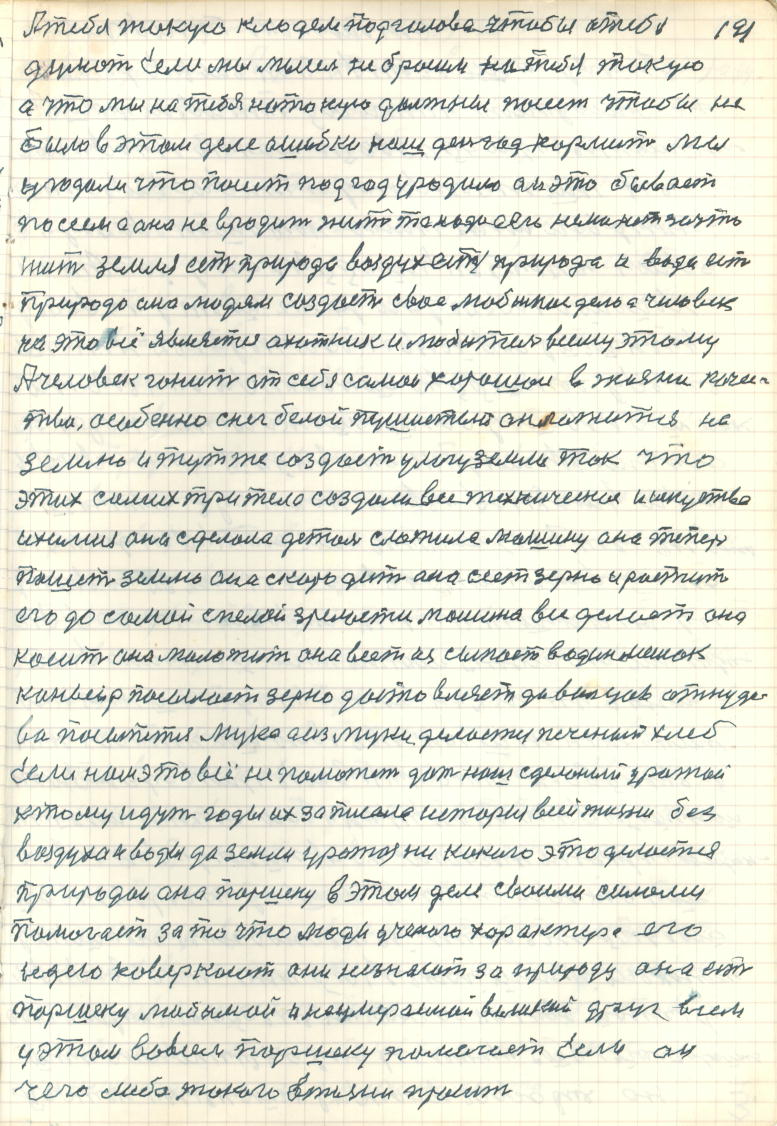 А тебя такую кладем под голова чтобы отебя 191
думат если мы мысл не бросим на тебя такую
а что мы на тебя на такую должны посеят чтобы не
было в этом деле ошибки наш ден год кормит мы
угодали что посеят под год уродило а и это бывает
посеем а она не вродит жит та надо есть не может зачт
жит земля ест природа воздух ест природа и вода ест
природа она людям создаст свае любимое дело а чиловек
на это всё является охотник и любител всему этому
А человек гонит от себя самои хорошои в жизни качес-
тва, особенно снег белой пушистый он ложится на
землю и тут же создаст улогу земли так что
этих самих три тела создали все техническое искуства
и химия она сделала детал сложила машину она тепер
пашет землю она скородит она сеет зерно и растит
его до самой спелой зрелости машина все делает она
косит она молотит она веет и сыпает водин мешок
канвеер посилает зерно доставляет до валцов откуде-
ва посыпется мука а из муки делается печений хлеб
если нам это всё не поможет дат наш сделаний урожай
ктому идут годы их записала истори всей жизни без
воздуха и воды да земли урожая ни какого это делается
природои она паршеку в этом деле своими силами
помогает зато что люди ученого характера его
коверкают они незнают за природу она ест
паршеку любимой и неумераемой великий друг всем
у этом вовсем паршеку помогает если он
чего либо такого вжизни просит